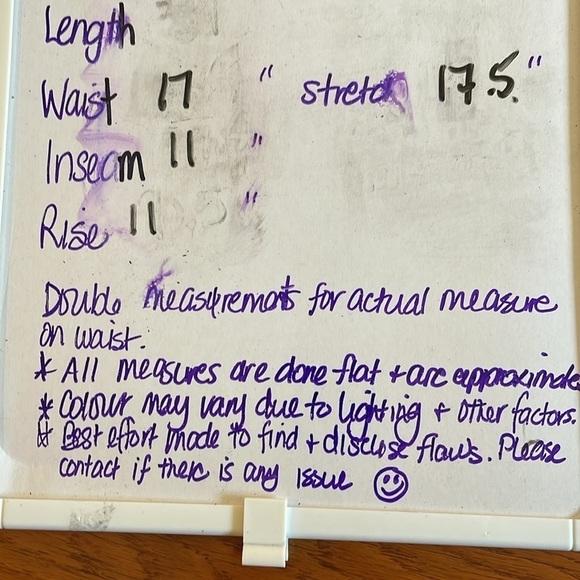 Length
Waist 17 " stretch 17.5"
Inseam 11 "
Rise 11 "
Double measurements for actual measure
on waist.
* All measures are done flat + are approximate
* Colour may vary due to lighting + other factors.
* Best effort made to find + disclose flaws. Please
contact if there is any issue ☺